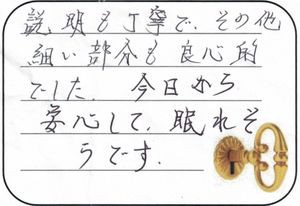 説明も丁寧で、その他
細い部分も良心的
でした。今日から
安心して、眠れそ
うです。